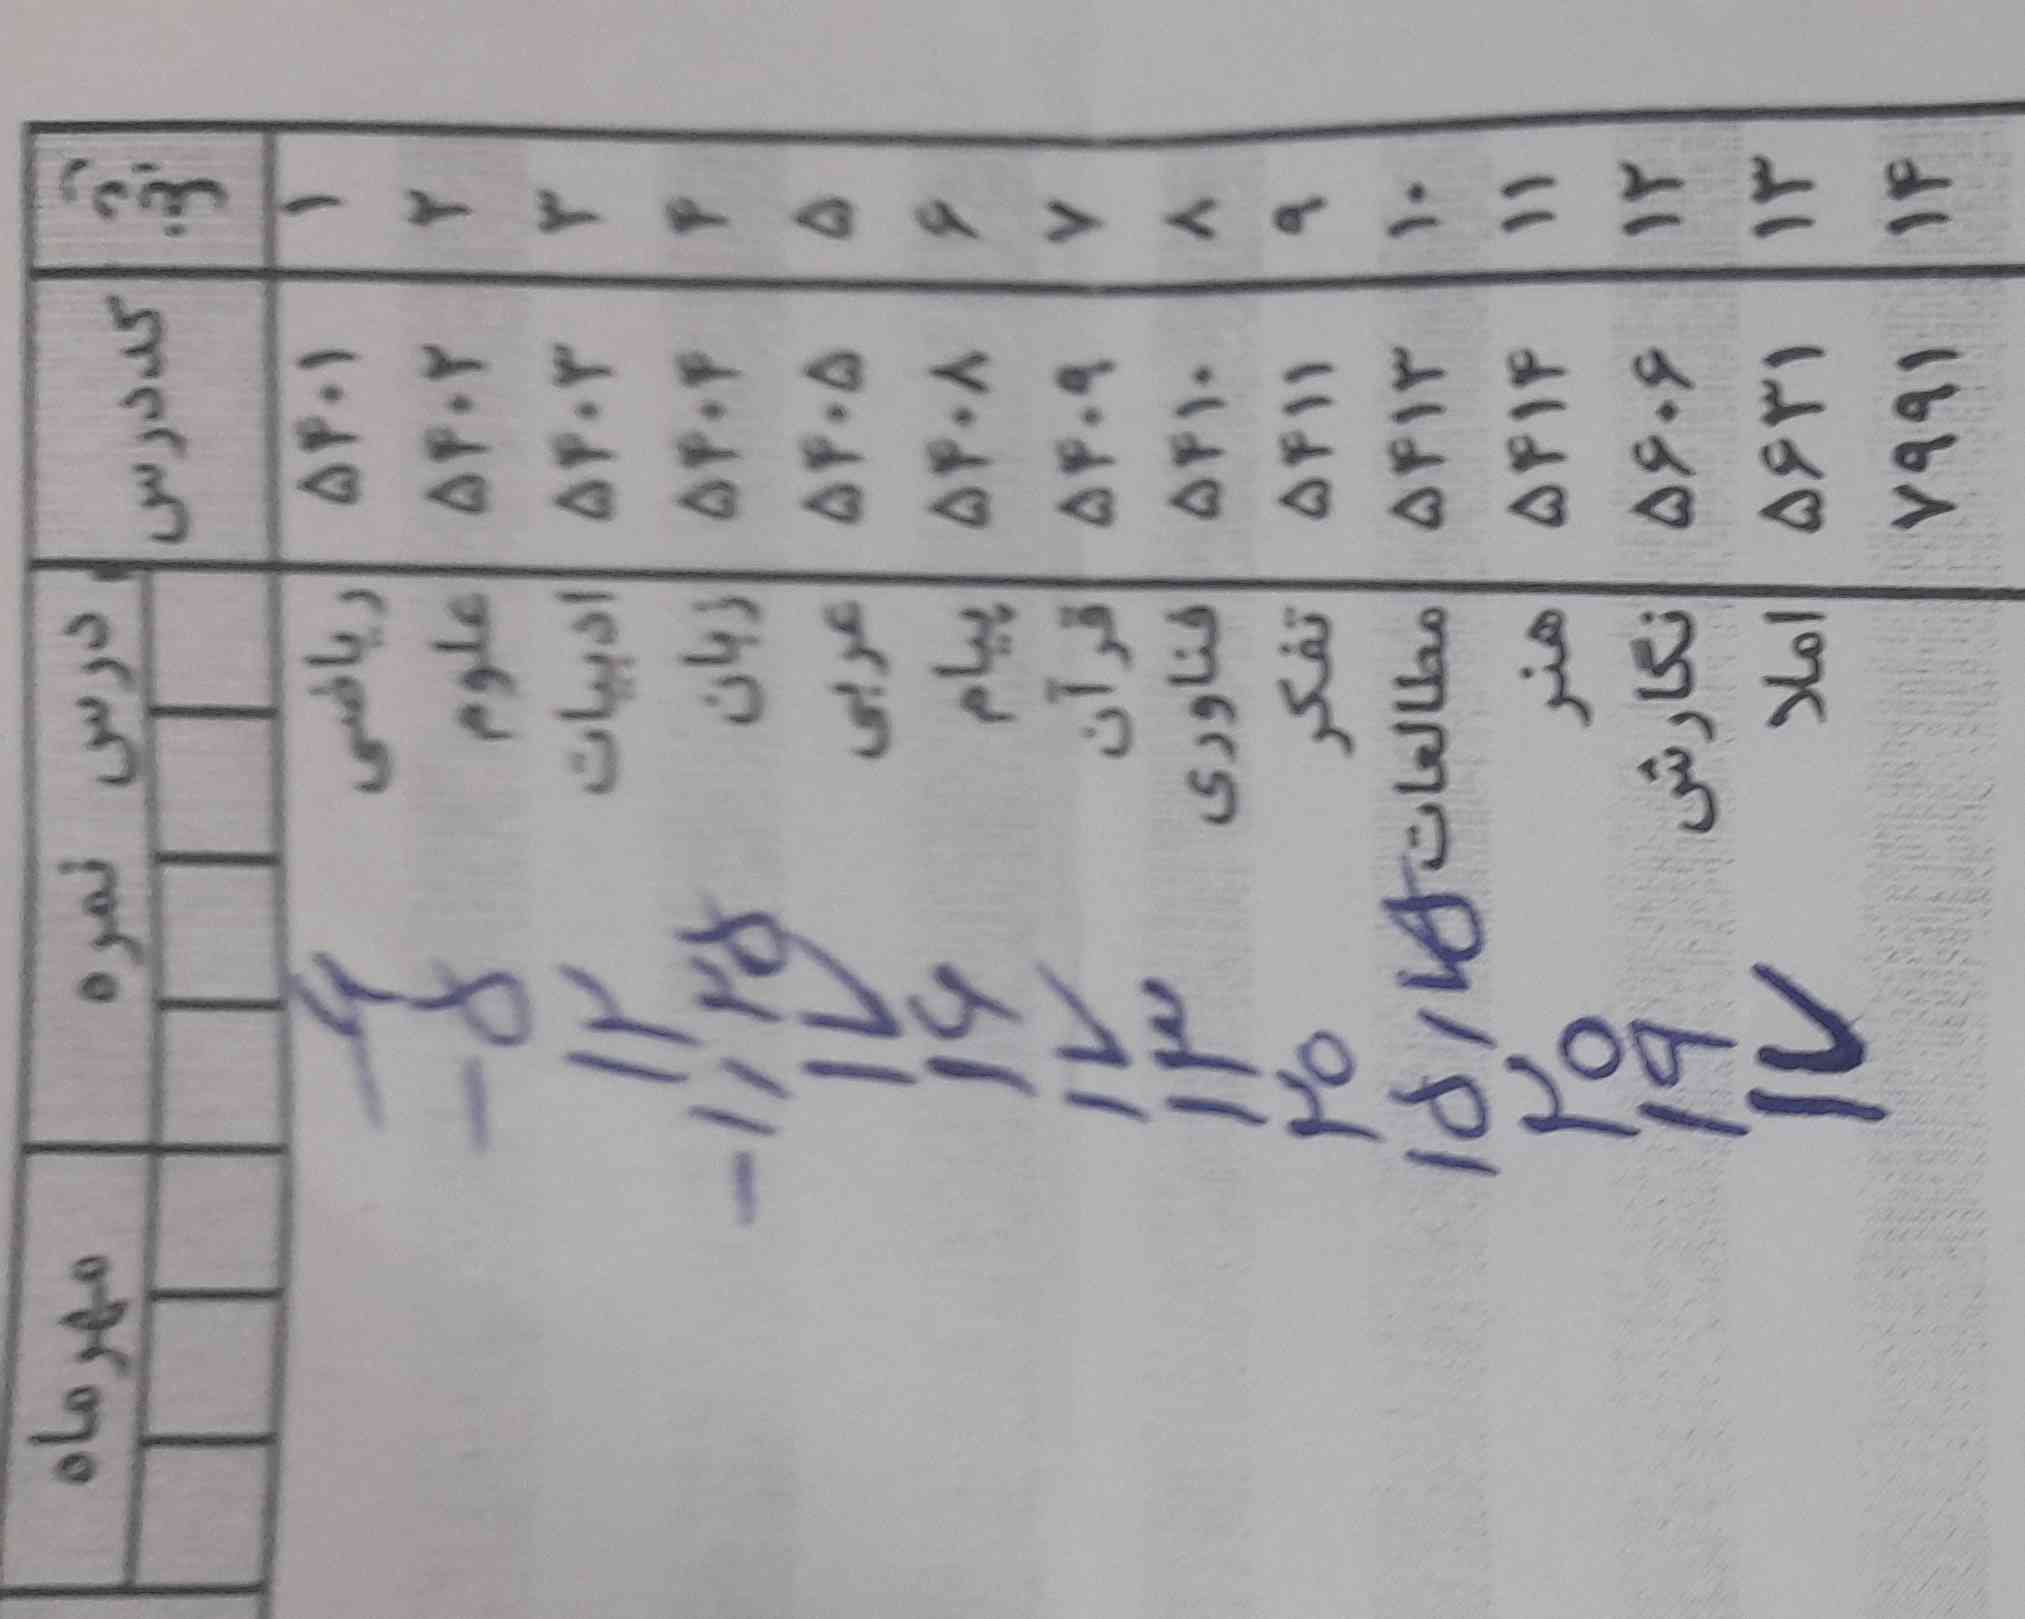 کددرس درس نمره مهر ماه
۱ ۵۴۰۱ ریاضی
۲ ۵۴۰۲ علوم - ۵
۳ ۵۴۰۳ ادبیات ۱۲
۴ ۵۴۰۴ زبان - ۱۱,۲۵
۵ ۵۴۰۵ عربی ۱۷
۶ ۵۴۰۸ پیام ۱۶
۷ ۵۴۰۹ قرآن ۱۷
۸ ۵۴۱۰ فناوری ۱۳
۹ ۵۴۱۱ تفکر ۲۰
۱۰ ۵۴۱۳ مطالعات
۱۱ ۵۴۱۴ هنر ۲۰
۱۲ ۵۶۰۶ نگارش ۱۹
۱۳ ۵۶۳۱ املا ۱۷
۱۴ ۷۹۹۱